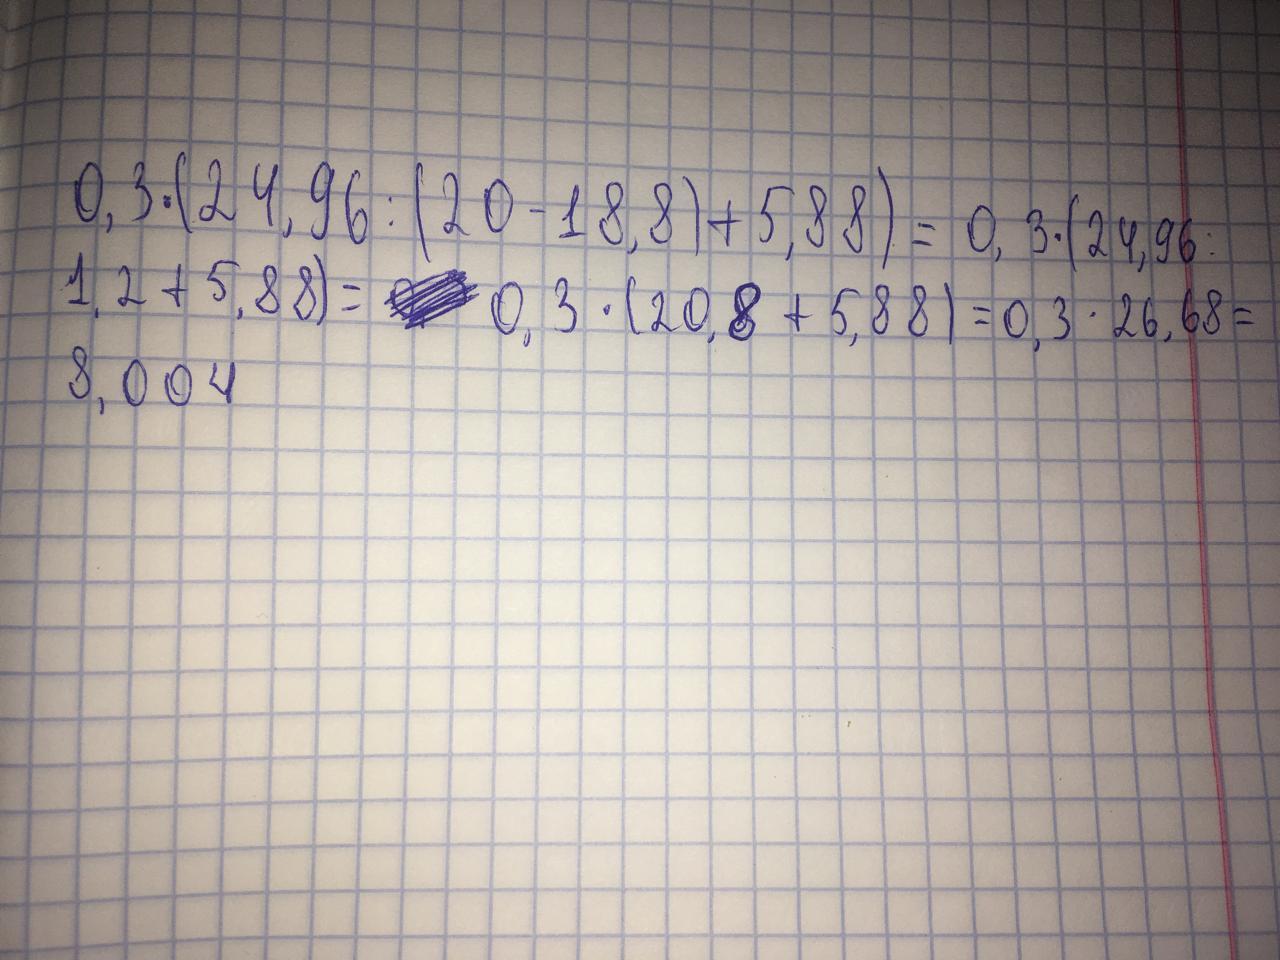 0,3·(24,96:(20-18,8)+5,88)=0,3·(24,96:
1,2+5,88)= 0,3·(20,8+5,88)=0,3·26,68=
8,004